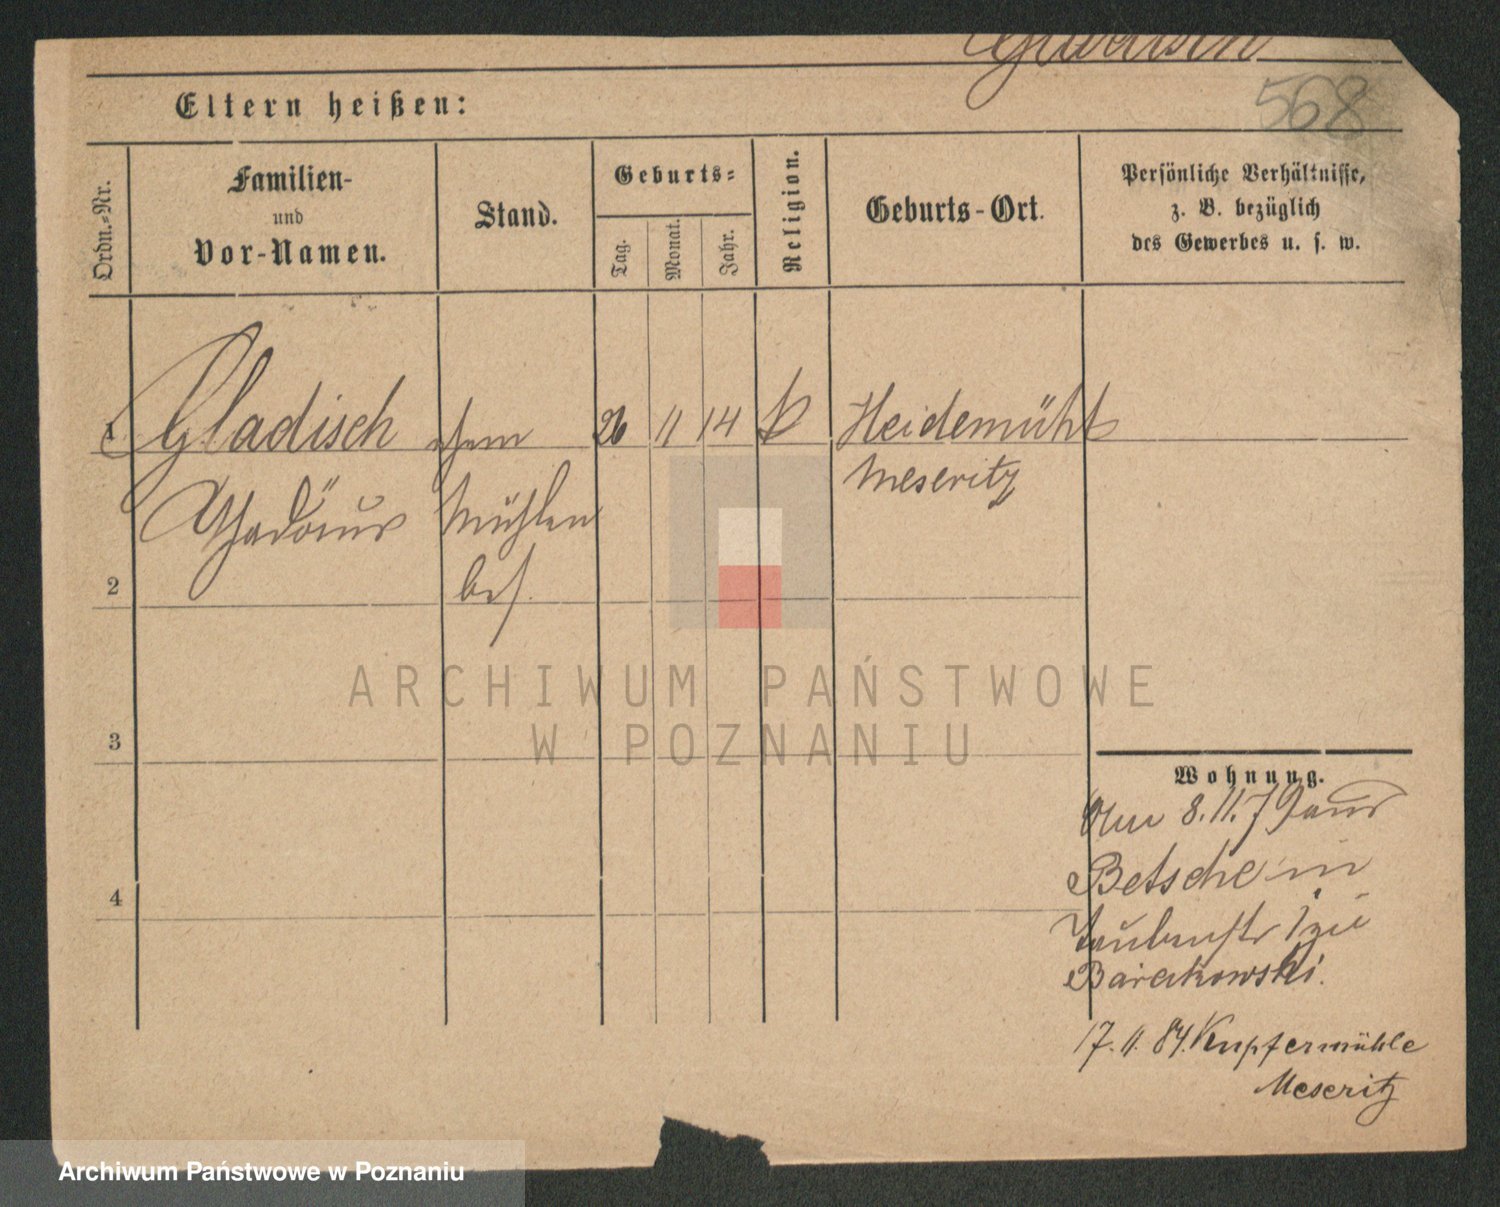 Gladisch
568
Eltern heißen:
Ordn.-Nr.
Familien-
und
Vor-Namen.
Stand.
Geburts-
Tag.
Monat.
Jahr.
Religion.
Geburts-Ort.
Persönliche Verhältnisse,
z. B. bezüglich
des Gewerbes u. s. w.
1 Gladisch 26 11 14 k Heidemühl
Meseritz
Thadäus Mühlen
2 bes.
3
4
Wohnung.
8.11.79 aus
Betsche in
Taubenstr 1 zu
Barakowski.
17.11.84. Kupfermühle
Meseritz
ARCHIWUM PAŃSTWOWE
W POZNANIU
Archiwum Państwowe w Poznaniu